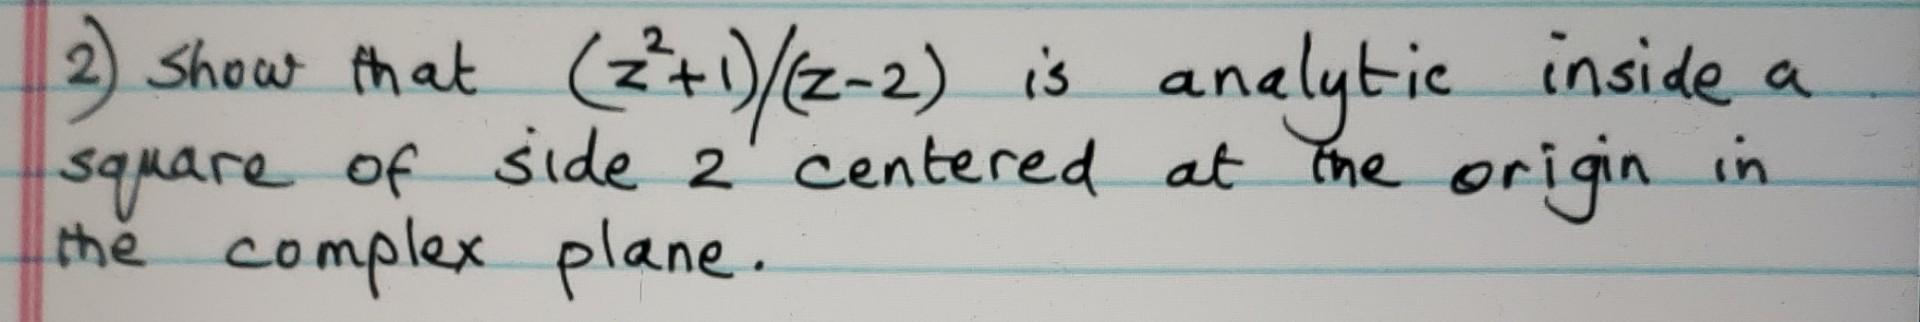 2) Show that (z²+1)/(z-2) is analytic inside a
square of side 2 centered at the origin in
the complex plane.